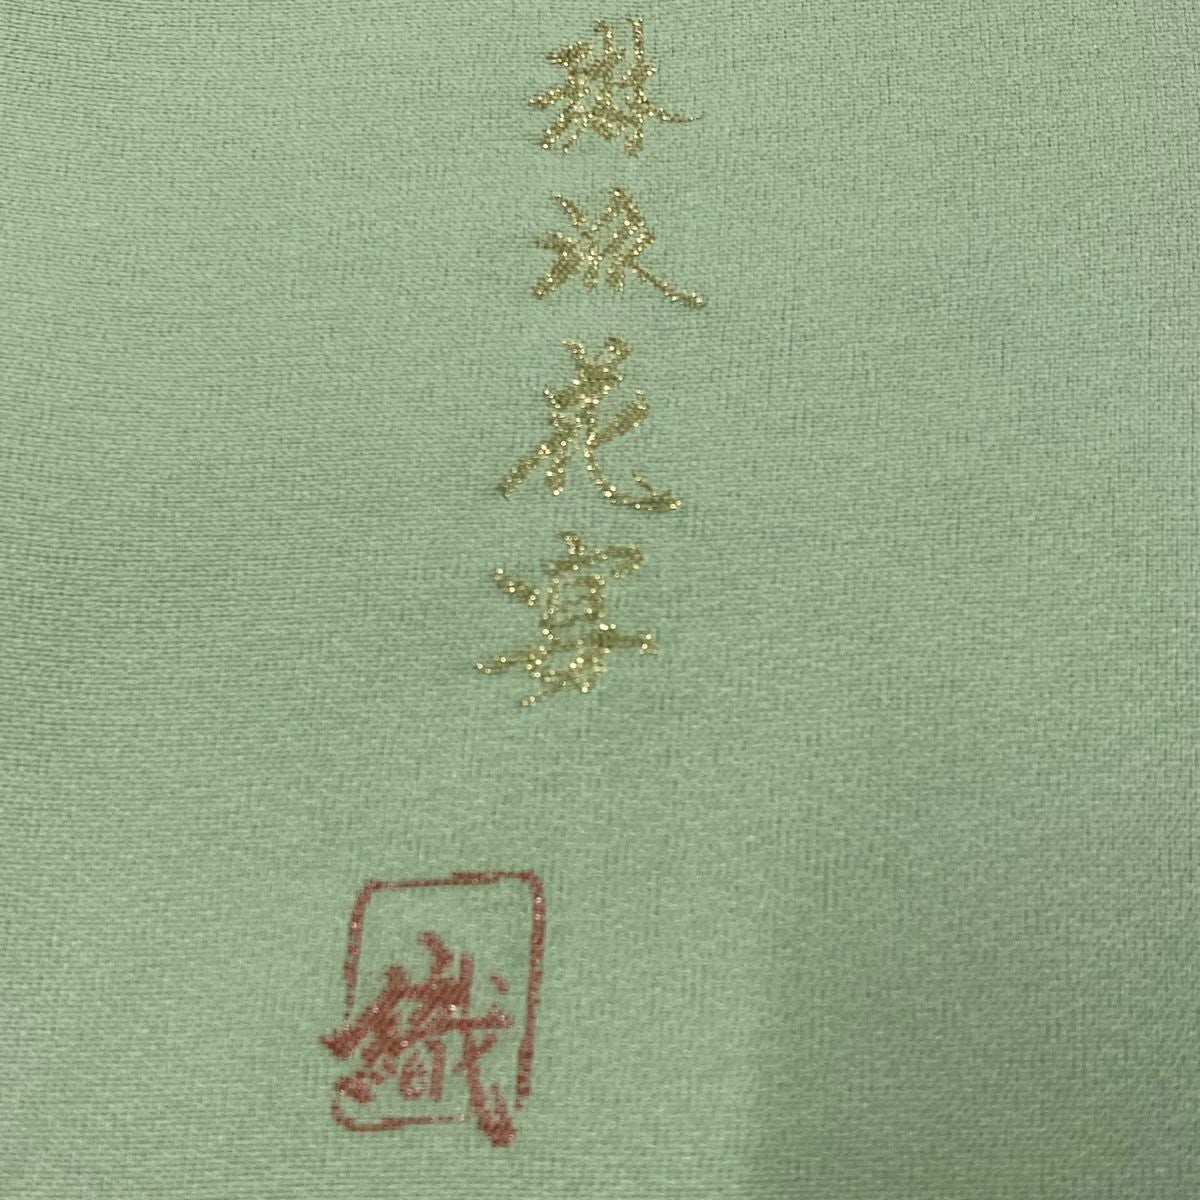 琳派花宴
織